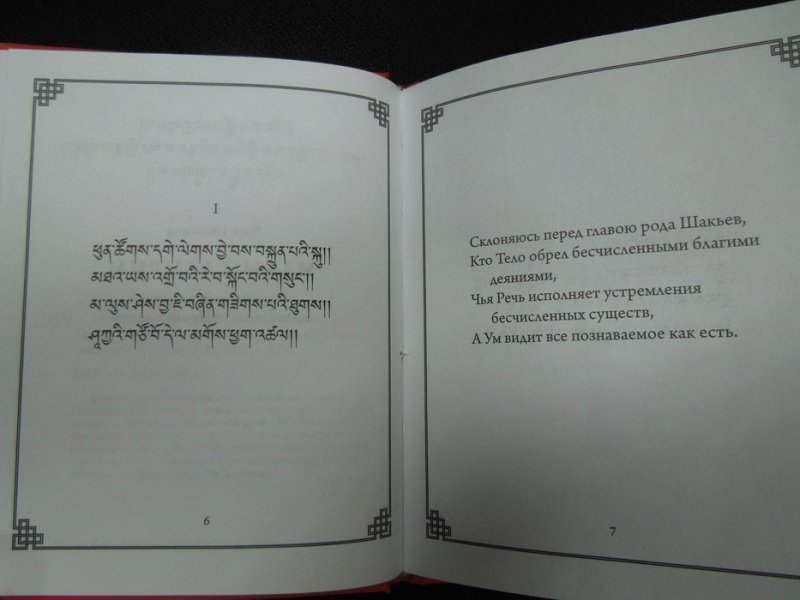 1
ཕུན་ཚོགས་དགེ་ལེགས་བྱེ་བས་བསྐྲུན་པའི་སྐུ།།
མཐའ་ཡས་འགྲོ་བའི་རེ་བ་སྐོང་བའི་གསུང་།།
མ་ལུས་ཤེས་བྱ་ཇི་བཞིན་གཟིགས་པའི་ཐུགས།།
ཤཱཀྱའི་གཙོ་བོ་དེ་ལ་མགོས་ཕྱག་འཚལ།།
6
Склоняюсь перед главою рода Шакьев,
Кто Тело обрел бесчисленными благими
деяниями,
Чья Речь исполняет устремления
бесчисленных существ,
А Ум видит все познаваемое как есть.
7